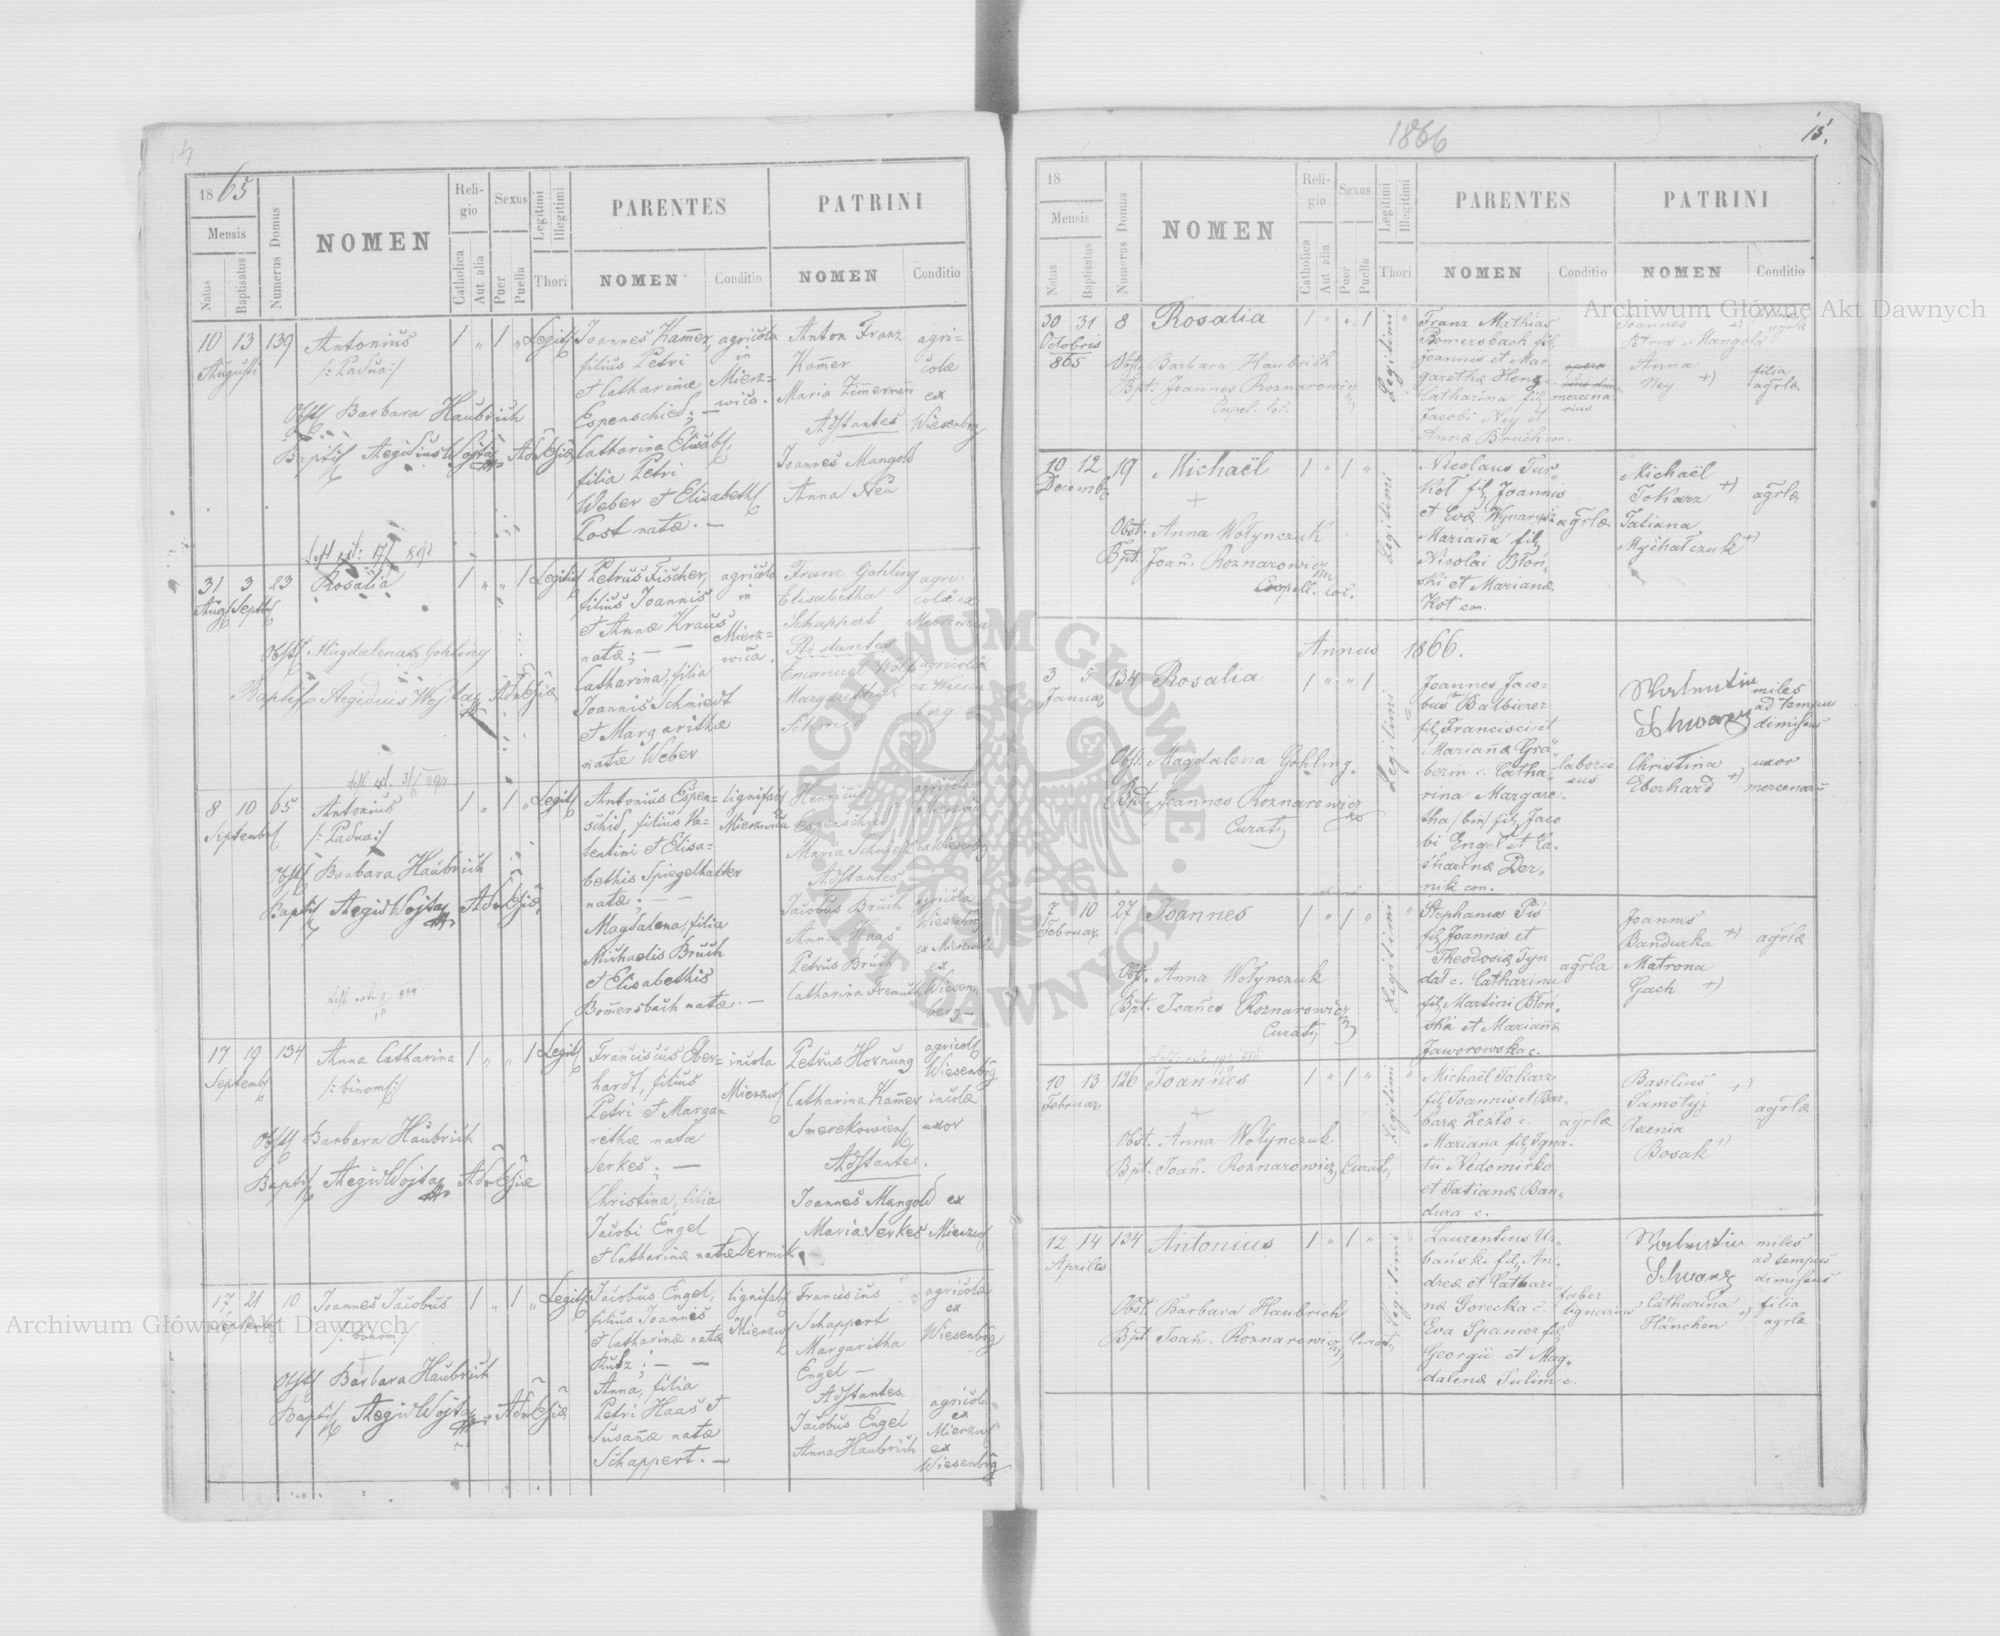 14
1865
Mensis
Natus
Baptisatus
Numerus Domus
NOMEN
Religio
Catholica
Aut alia
Sexus
Puer
Puella
Legitimi
Illegitimi
Thori
PARENTES
NOMEN
Conditio
PATRINI
NOMEN
Conditio
10 13 139 Antonius 1 " 1 " Legit
Augusti
/: Padua :/
Obst Barbara Haubrich
Bapt Aegidius Wojtas
Joannes Kamer,
filius Petri
et Catharinae
Espenschied; —
Catharina Elisab,
filia Petri
Weber et Elisabeth
Post natae. —
agricola
in
Mierz=
wica.
Anton Franz
Kamer
Maria Zimerman
Adstantes
Joannes Mangold
Anna Neu
agri=
colae
ex
Wiesenbrg
31 3 23 Rosalia 1 " " 1 Legit
Aug Sept
Obst Magdalena Gohling
Baptis Aegidius Wojtas
Petrus Fischer,
filius Joannis
et Annae Kraus
natae; — —
Catharina, filia
Joannis Schmiedt
et Margarithae
natae Weber
agricola
in
Mierz=
wica.
Franz Gohling
Elisabetha
Schappert
Adstantes
Emanuel Wolf
Margaretha
agri-
colae ex
8 10 65 Antonius 1 " 1 " Legit
Septemb
/: Padua :/
Obst Barbara Haubrich
Bapt Aegid Wojtas
Antonius Espen=
schid, filius Va=
lentini et Elisa=
bethis Spiegelhalter
natae; — —
Magdalena, filia
Michaelis Bruch
et Elisabethis
Bomersbach natae. —
lignifab
Mierzwica
Henricus
Espenschid
Maria Schmidt
Adstantes
Jacobus Bruch
Anna Haas
Petrus Bruch
Catharina Fremuth
agricola
ex Wiesenbrg
agricola
Wiesenbrg
ex
Wiesen
berg —
17 19 134 Anna Catharina 1 " " 1 Legit
Septemb
/: binom :/
Obst Barbara Haubrich
Bapt Aegid Wojtas
Franciscus Eber=
hardt, filius
Petri et Marga=
rithae natae
Serkes; —
Christina, filia
Jacobi Engel
et Catharinae natae Dernik
incola
Mierzw
Petrus Hornung
Catharina Kamer
Smerekowien
Adstantes.
Joannes Mangold
Maria Serkes
agricol
Wiesenbrg
incolae
uxor
ex
Mierzw
17 21 10 Joannes Jacobus 1 " 1 " Legit
Septemb
/: binom :/
Obst Barbara Haubrich
Bapt Aegid Wojtas
Jacobus Engel,
filius Joannis
et Catharinae natae
Kutz; — —
Anna, filia
Petri Haas et
Susanae natae
Schappert. —
lignifab
Mierzw
Franciscus
Schappert
Margaritha
Engel —
Adstantes
Jacobus Engel
Anna Haubrich
agricolae
ex
Wiesenbrg
agricol
ex
Mierzw
ex
Wiesenbrg
1866
15.
18
Mensis
Natus
Baptisatus
Numerus Domus
NOMEN
Religio
Catholica
Aut alia
Sexus
Puer
Puella
Legitimi
Illegitimi
Thori
PARENTES
NOMEN
Conditio
PATRINI
NOMEN
Conditio
30 31 8 Rosalia 1 " " 1 Legitimi "
Octobris
865
Obst. Barbara Haubrich
Bpt. Joannes Roznarowicz
Capel. loc.
Franz Mathias
Bomersbach fil
Joannis et Mar=
garethae Heng c.
Catharina fil
Jacobi Ney et
Annae Bruch con.
mercena
rius
Joannes +)
Petrus Mangold
Anna
Ney +)
agrlae
filia
agrlae
10 12 19 Michaël 1 " 1 " Legitimi
Decemb
+
Obst. Anna Wołynczuk
Bpt. Joan. Roznarowicz
Coopell. loc.
Nicolaus Tur
Kot fil Joannis
et Evae
Mariana fil
Nicolai Błoń=
ski et Marianae
Kot con.
agrlae
Michaël
Tokarz +)
Tatiana
Mychałczuk +)
agrlae
Annus 1866.
3 5 134 Rosalia 1 " " 1 Legitimi "
Januar
Obst. Magdalena Gohling.
Bpt. Joannes Roznarowicz
Curat
Joannes Jaco=
bus Balbierer
fil Francisci et
Marianae Grä=
berin c. Catha=
rina Margare=
tha /bin/ fil Jaco
bi Engel et Ca=
tharinae Der=
nik con.
laborio
sus
Valentin
Schwarz
Christina
Eberhard +)
miles
ad tempus
dimissus
uxor
mercenarii
7 10 27 Joannes 1 " 1 " Legitimi "
Februar
Obst. Anna Wołynczuk
Bpt. Joannes Roznarowicz
Curat
Stephanus Piś
fil Joannis et
Theodosiae Tyn
dat c. Catharina
fil Martini Błoń=
ski et Marianae
Jaworowska c.
agrla
Joannes
Bandurka +)
Matrona
Gach +)
agrlae
10 13 126 Joannes 1 " 1 " Legitimi "
Februar
+
Obst. Anna Wołynczuk
Bpt. Joan. Roznarowicz Curat
Michaël Tokarz
fil Joannis et Bar=
barae Zezło c.
Mariana fil Igna=
tii Nedomirko
et Tatianae Ban=
dura c.
agrlae
Basilius
Samotyj +)
Axenia
Bosak +)
agrlae
12 14 134 Antonius 1 " 1 " Legitimi "
Aprilis
Obst. Barbara Haubrich
Bpt. Joan. Roznarowicz Curat
Laurentius Ur=
bański fil An=
dreae et Cathari
nae Gorecka c.
Eva Spanier fil
Georgii et Mag=
dalenae Sulim c.
faber
lignarius
Valentin
Schwarz
Catharina
Hänchen +)
miles
ad tempus
dimissus
filia
agrlae
Archiwum Główne Akt Dawnych
Archiwum Główne Akt Dawnych
ARCHIWUM GŁÓWNE · AKT DAWNYCH ·